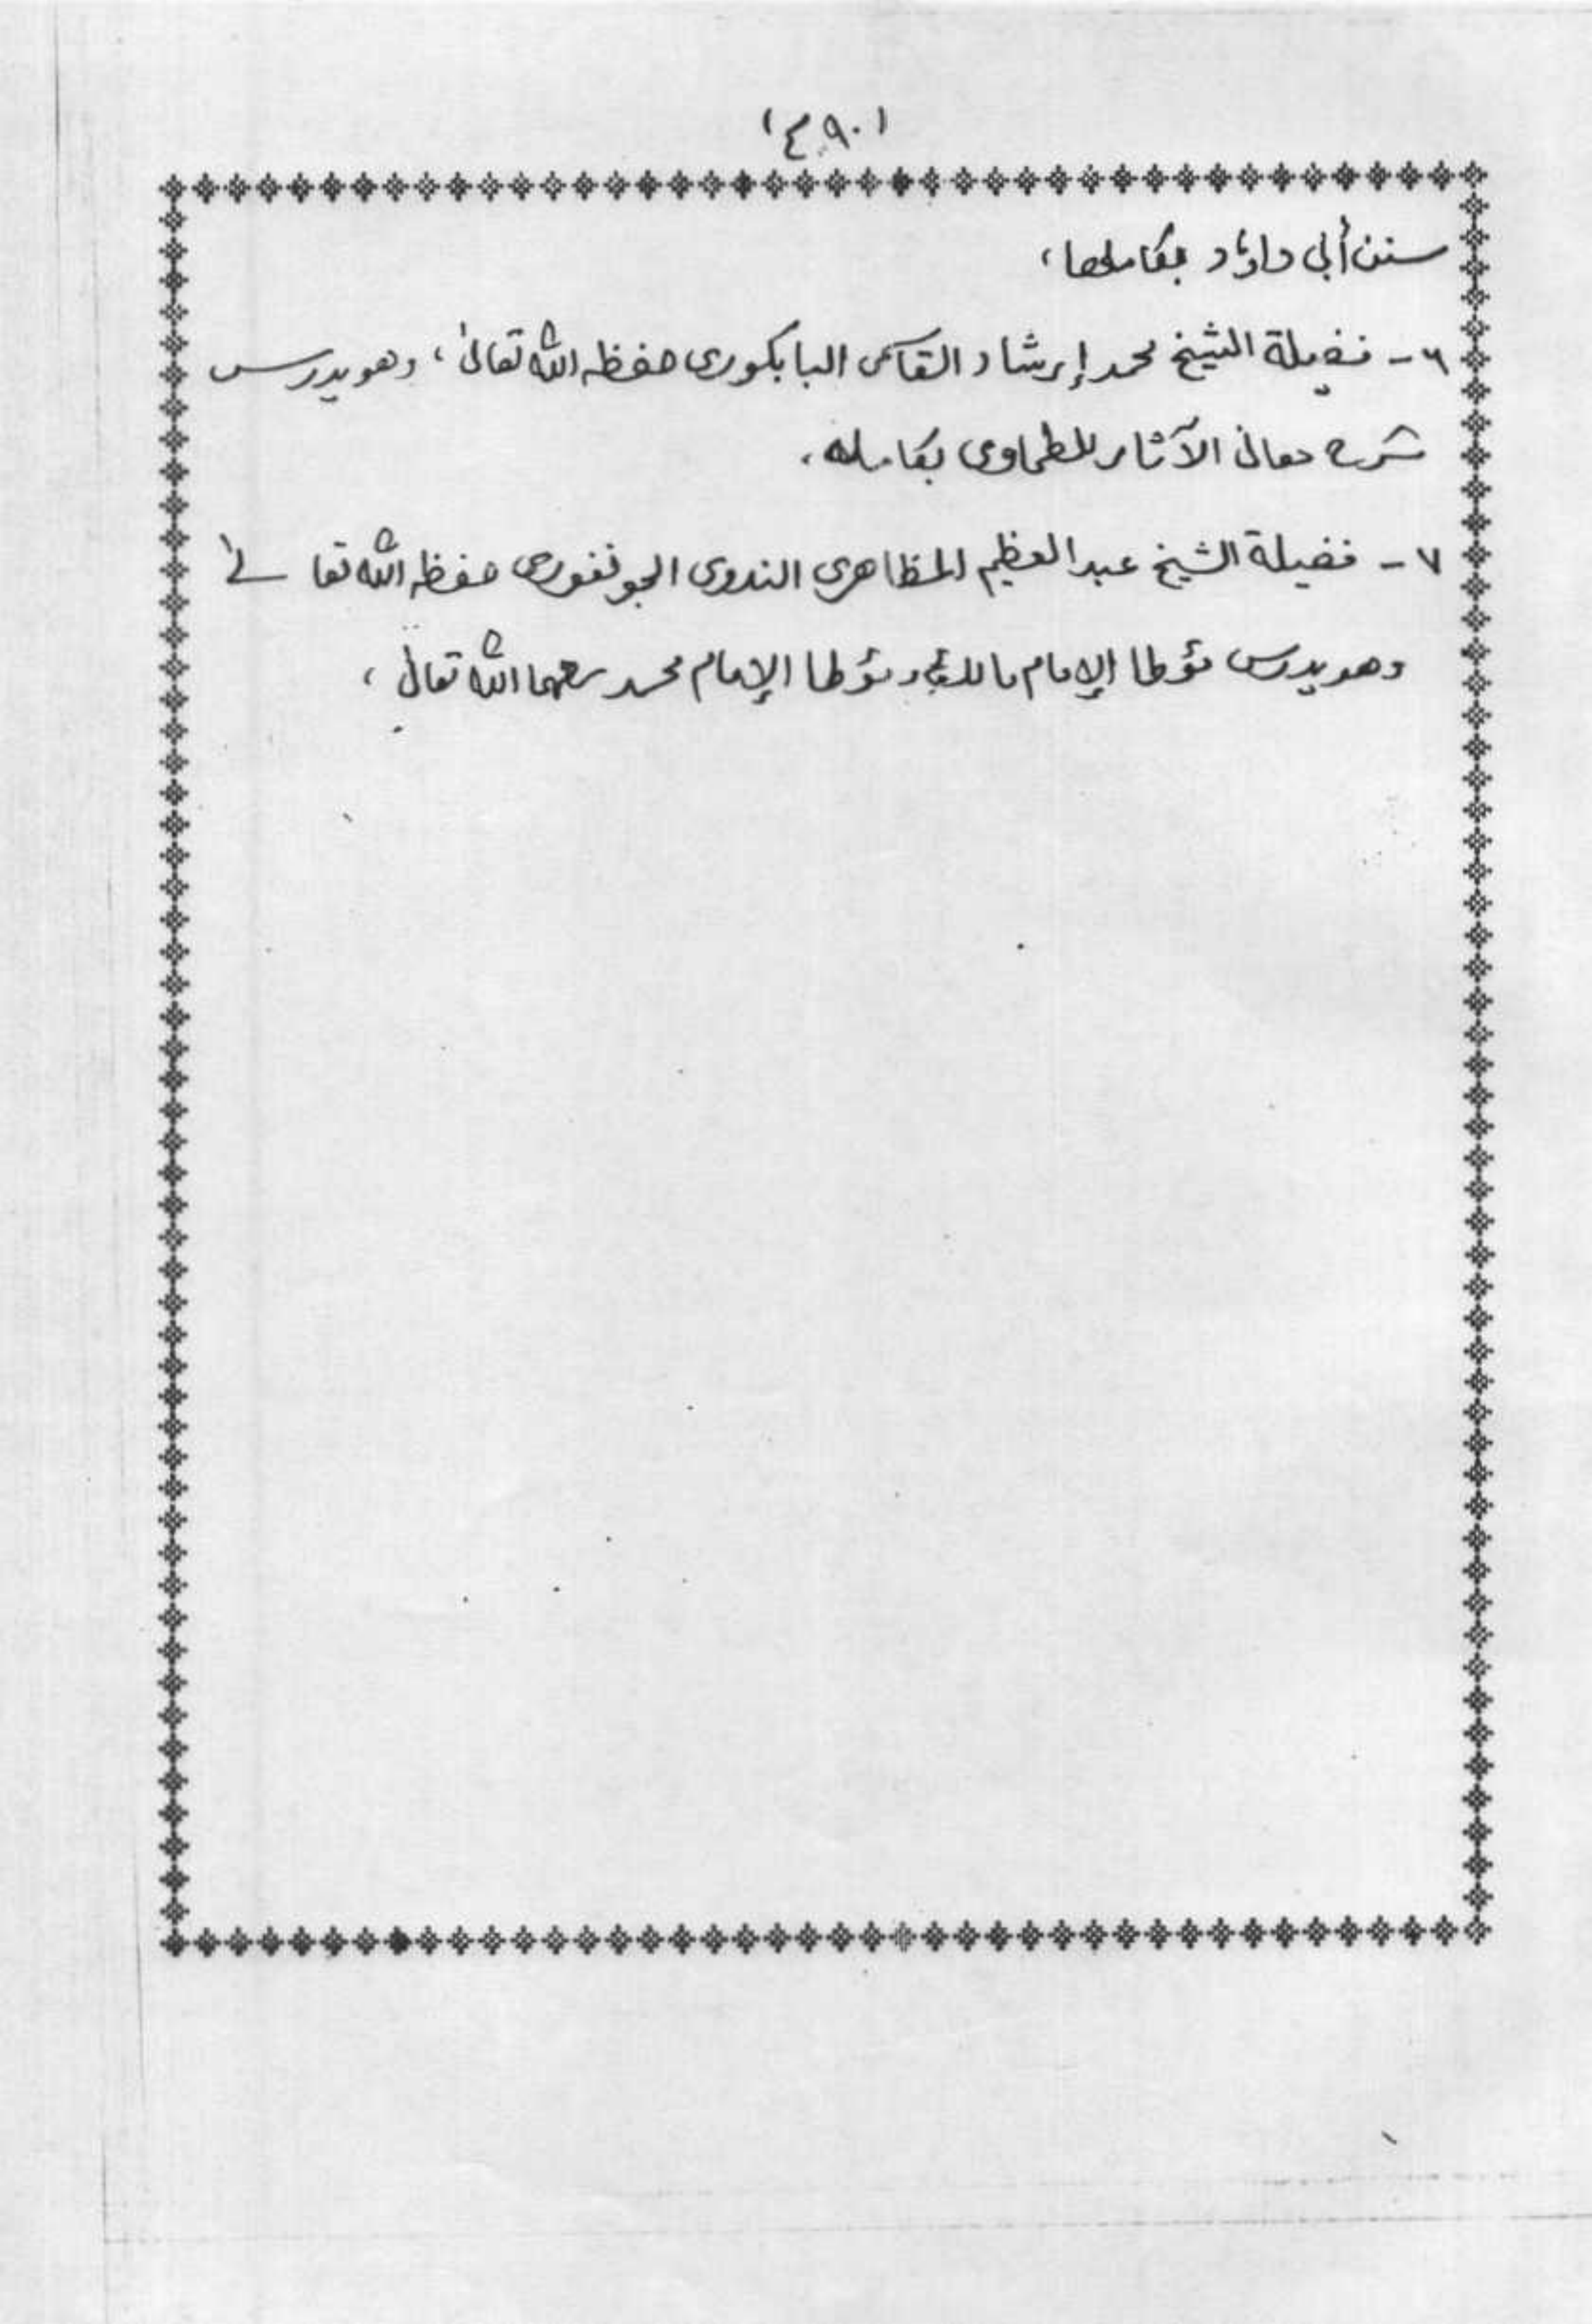 (٤٩٠)
سنن أبي داؤد بكاملها،
٦- فضيلة الشيخ محمد إرشاد القاسمي البابكوري حفظه الله تعالىٰ، وهو يدرس
شرح معاني الآثار للطحاوي بكامله.
٧- فضيلة الشيخ عبد العظيم المظاهري الندوي الجونفوري حفظه الله تعالىٰ
وهو يدرس مؤطا الإمام مالك ومؤطا الإمام محمد رحمهما الله تعالىٰ،